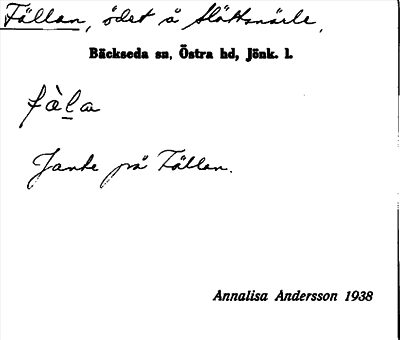 Fällan, ödet å Slättsnärle,
Bäckseda sn, Östra hd, Jönk. l.
fàla
Jante på Fällan.
Annalisa Andersson 1938